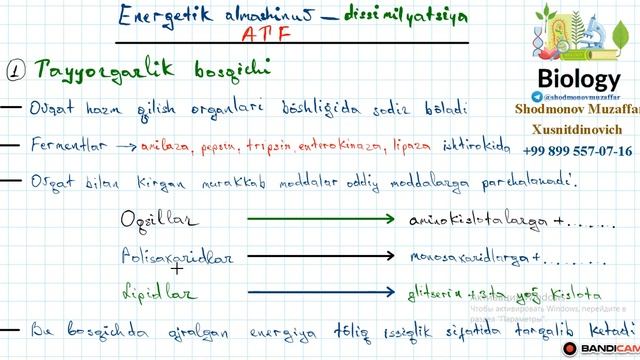 Energetik almashinuv – dissimilyatsiya
ATF
① Tayyorgarlik bosqichi
Biology
@shodmonov_muzaffar
Shodmonov Muzaffar
Xusnitdinovich
+99 899 557-07-16
— Ovqat hazm qilish organlari bo'shlig'ida sodir bo'ladi
— Fermentlar → amilaza, pepsin, tripsin, enterokinaza, lipaza ishtirokida
— Ovqat bilan kirgan murakkab moddalar oddiy moddalarga parchalanadi.
Oqsillar → aminokislotalarga + .......
Polisaxaridlar → monosaxaridlarga + .......
Lipidlar → glitserin + 3ta yog' kislota
Чтобы активировать Windows, перейдите в
раздел "Параметры".
— Bu bosqichda ajralgan energiya to'liq issiqlik sifatida tarqalib ketadi
BANDICAM